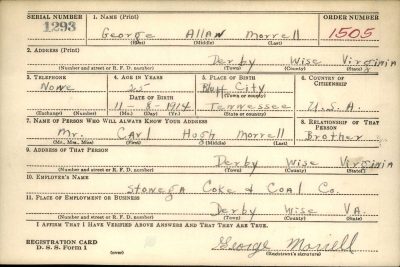 SERIAL NUMBER 1. NAME (Print) ORDER NUMBER
1293 George Allan Morrell 1505
(First) (Middle) (Last)
2. ADDRESS (Print)
Derby Wise Virginia
(Number and street or R. F. D. number) (Town) (County) (State)
3. TELEPHONE 4. AGE IN YEARS 5. PLACE OF BIRTH 6. COUNTRY OF CITIZENSHIP
None 25 City
DATE OF BIRTH (Town or county)
11-8-1914 Tennessee U.S.A.
(Exchange) (Number) (Mo.) (Day) (Yr.) (State or country)
7. NAME OF PERSON WHO WILL ALWAYS KNOW YOUR ADDRESS 8. RELATIONSHIP OF THAT PERSON
Mr. Carl Hugh Morrell Brother
(Mr., Mrs., Miss) (First) (Middle) (Last)
9. ADDRESS OF THAT PERSON
Derby Wise Virginia
(Number and street or R. F. D. number) (Town) (County) (State)
10. EMPLOYER'S NAME
Stonega Coke & Coal Co.
11. PLACE OF EMPLOYMENT OR BUSINESS
Derby Wise VA.
(Number and street or R. F. D. number) (Town) (County) (State)
I AFFIRM THAT I HAVE VERIFIED ABOVE ANSWERS AND THAT THEY ARE TRUE.
REGISTRATION CARD George Morrell
D. S. S. Form 1 (over) (Registrant's signature)